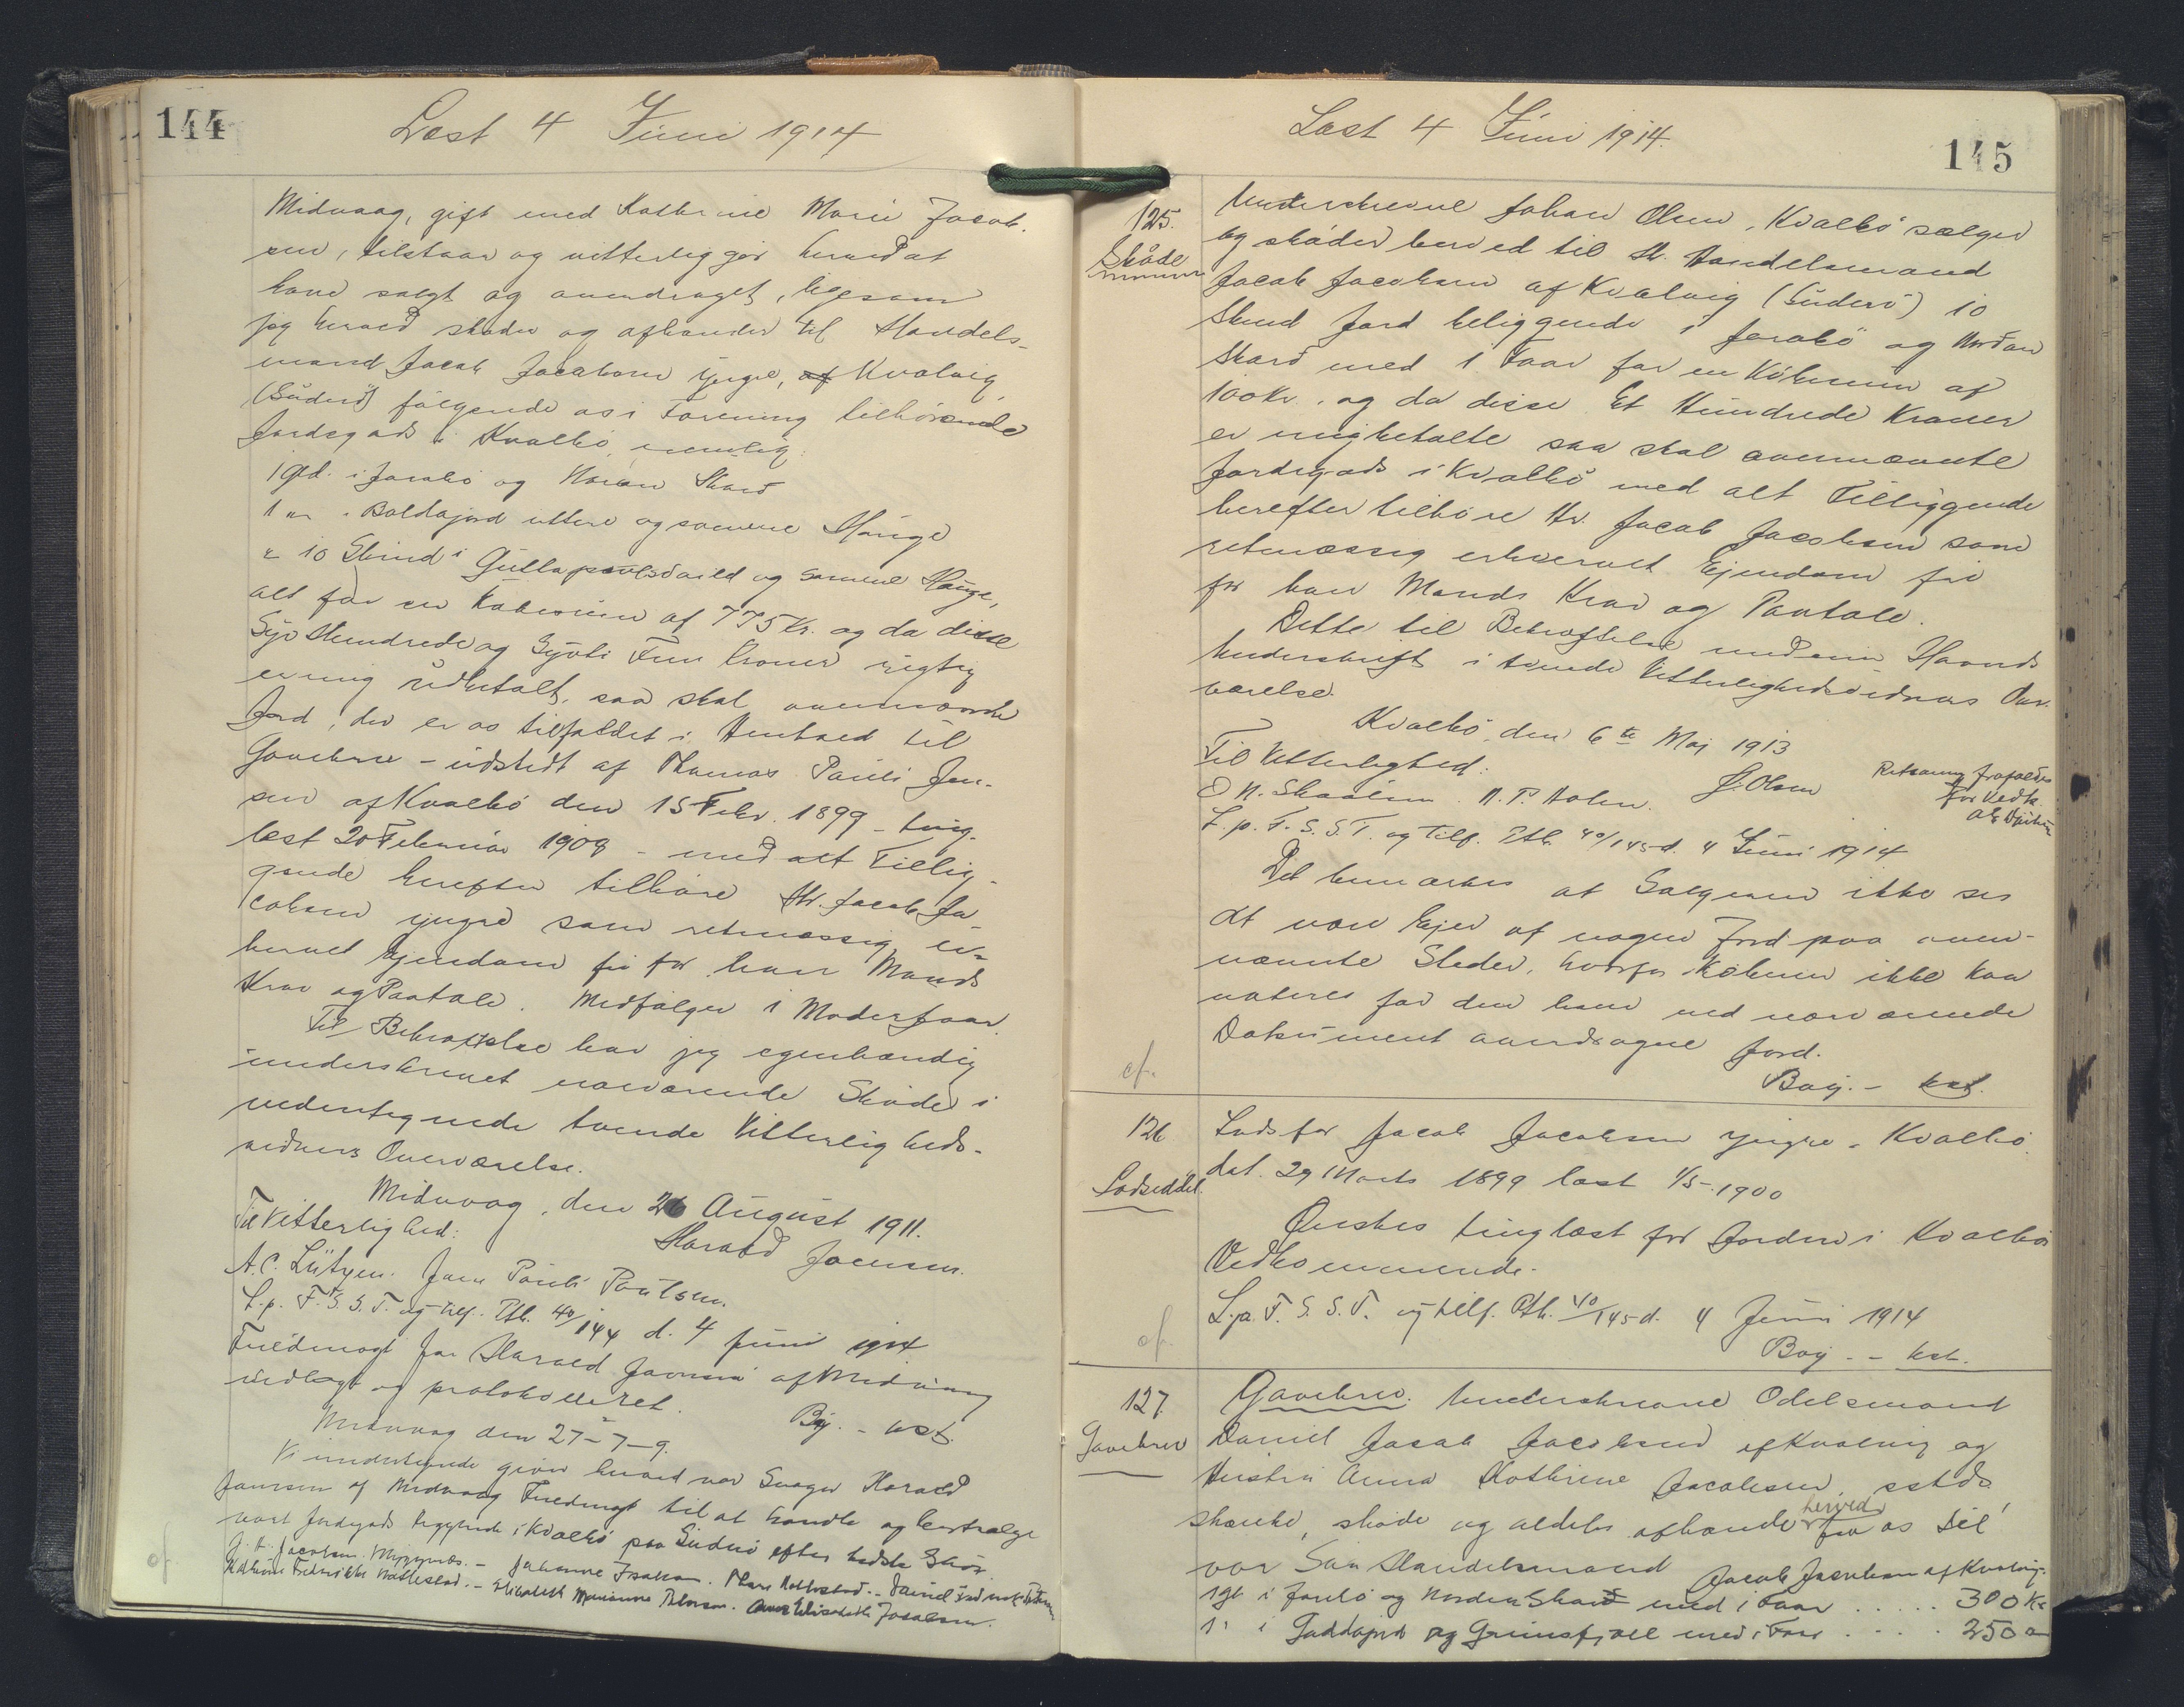 144
Læst 4 Juni 1914
Midvaag, gift med Kathrine Marie Jacob-
sen, tilstaar og vitterliggør herved at
have solgt og overdraget, ligesom
jeg herved skøder og afhænder til Handels-
mand Jacob Jacobsen yngre, af Kvalvig
(Suderø) følgende os i Forening tilhørende
Jordegods i Kvalbø, nemlig:
1 Gld. i Jarabø og Nordan Skard
1 " " Boldajord uttere og samme Hauge
" 10 Skind i Gullapoulsdeild og samme Hauge,
alt for en Købesum af 775 Kr. og da disse
Syv Hundrede og Syvti Fem Kroner rigtig
er mig udbetalt, saa skal ovennævnte
Jord, der er os tilfaldet i Henhold til
Gavebrev - udstedt af Thomas Pauli Jen-
sen af Kvalbø den 15 Febr. 1899 - ting-
læst 20 Februar 1909 - med alt Tillig-
gende herefter tilhøre Hr. Jacob Ja-
cobsen yngre som retmæssig er-
hvervet Ejendom fri for hver Mands
Krav og Paatale. Medfølger 1 Moderfaar.
Til Bekræftelse har jeg egenhændig
underskrevet nærværende Skøde i
undertegnede tvende Vitterligheds-
vidners Overværelse.
Midvaag, den 26 August 1911.
Til Vitterlighed: Harald Joensen.
A. C. Lützen. Jens Pauli Poulsen.
L. p. F. S. S. T. og tilf. Ptk. 40/144 d. 4 Juni 1914
Fuldmagt for Harald Joensen af Midvaag
vedlagt og protokolleret.
Bøj. - kst.
Midvaag den 27-7-9.
Vi undertegnede giver herved vor Svoger Harald
Joensen af Midvaag Fuldmagt til at handle og bortsælge
vort Jordegods liggende i Kvalbø paa Suderø efter bedste Skøn.
J. H. Jacobsen. Myggenæs. - Johanne Isaksen. Thare Nattestad. - Daniel
Kathrine Fredrikke Nattestad. - Elisabeth Marianne Petersen. Anna Elisabeth Jacobsen.
cf.
145
Læst 4 Juni 1914.
125.
Skøde
Underskrevne Johan Olsen, Kvalbø sælger
og skøder herved til Hr. Handelsmand
Jacob Jacobsen af Kvalvig (Suderø) 10
Skind Jord beliggende i Jarabø og Nordan
Skard med 1 Faar for en Købesum af
100 Kr. og da disse Et Hundrede Kroner
er mig betalte saa skal ovennævnte
Jordegods i Kvalbø med alt Tilliggende
herefter tilhøre Hr. Jacob Jacobsen som
retmæssig erhvervet Ejendom fri
for hver Mands Krav og Paatale.
Dette til Bekræftelse med min Haands
Underskrift i tvende Vitterlighedsvidners Over-
værelse.
Kvalbø, den 6te Maj 1913
Til Vitterlighed: J. Olsen
O. N. Skaalum. N. P. Holm.
Retsanm. frafaldes
for Vedk.
L. p. F. S. S. T. og tilf. Ptk. 40/145 d. 4 Juni 1914
Det bemærkes at Sælgeren ikke ses
at være Ejer af nogen Jord paa oven-
nævnte Steder, hvorfor Køberen ikke kan
noteres for den ham ved nærværende
Dokument overdragne Jord.
Bøj. - kst.
cf.
126
Lodseddel.
Lods for Jacob Jacobsen yngre - Kvalbø.
dat. 29 Marts 1899 læst 1/5 - 1900
Ønskes tinglæst for Jorden i Kvalbø
Vedkommende.
L. p. F. S. S. T. og tilf. Ptk. 40/145 d. 4 Juni 1914
Bøj. - kst.
cf.
127.
Gavebrev
Gavebrev. Underskrevne Odelsmand
Daniel Jacob Jacobsen af Kvalvig og
Hustru Anna Kathrine Jacobsen, sstds
skænke, skøde og aldeles afhænde herved fra os til
vor Søn Handelsmand Jacob Jacobsen af Kvalvig.
1 gl. i Jarabø og Nordan Skard med 1 Faar . . . . . 300 Kr
1 " i Gaddajord og Grimsfjall med 1 Faar . . . . 250 "